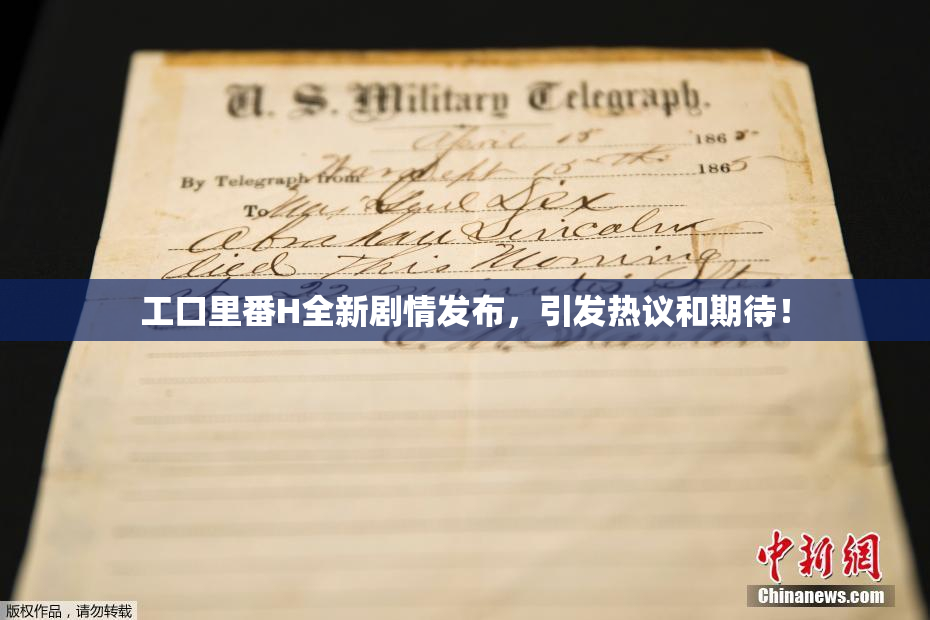 U. S. Military Telegraph.
April 15 1865
By Telegraph from War Dept 15th 1865
To Maj Genl Dix
Abraham Lincoln
died This Morning
at 22 minutes after
工口里番H全新剧情发布，引发热议和期待！
E. M. Stanton
中新網
Chinanews.com
版权作品，请勿转载